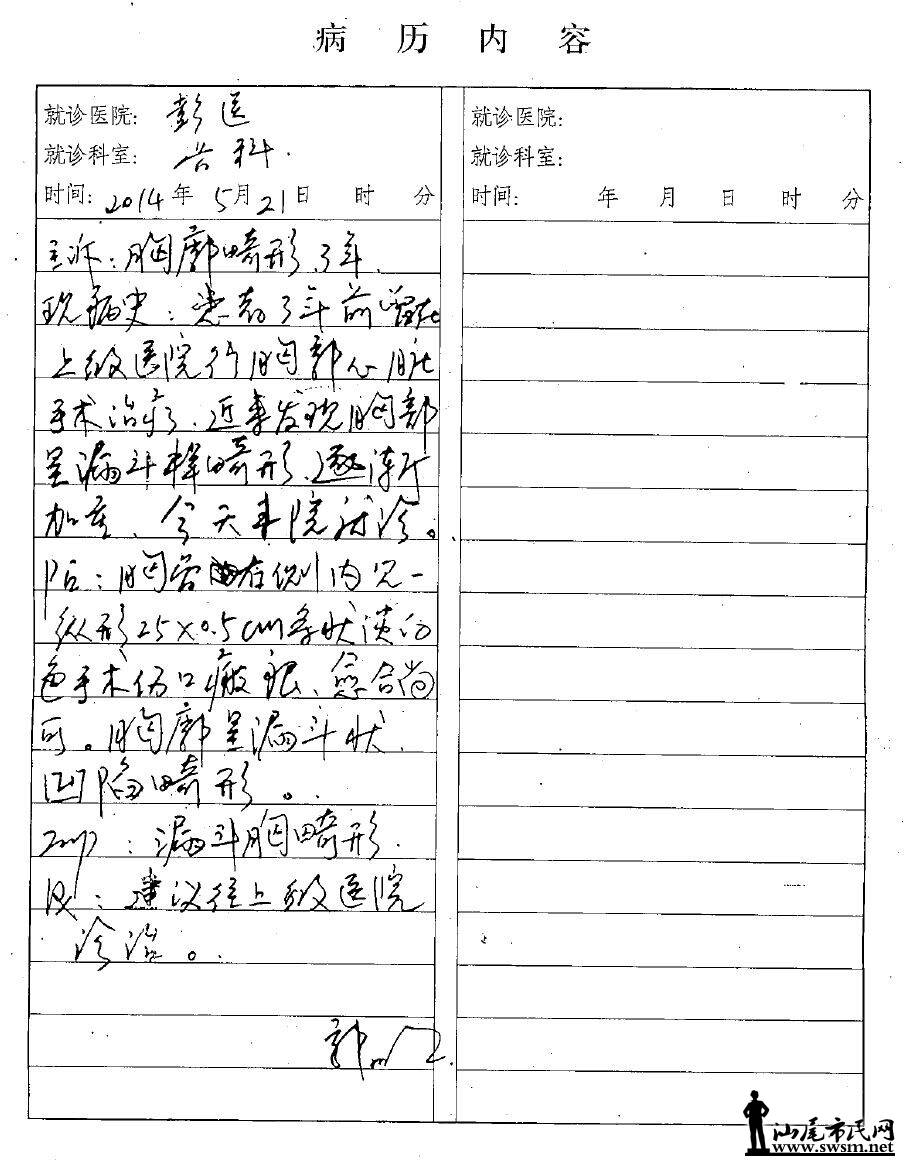 病 历 内 容
就诊医院: 彭医
就诊科室: 外科.
时间: 2014年 5月21日 时 分
主诉:胸廓畸形3年.
现病史:患者3年前曾在
上级医院行胸部心脏
手术治疗.近来发现胸部
呈漏斗样畸形、逐渐
加重、今天来院就诊。
PE:胸骨右侧内见一
纵形25×0.5cm条状淡白
色手术伤口瘢痕、愈合尚
可。胸廓呈漏斗状
凹陷畸形。
Imp:漏斗胸畸形.
Rx:建议往上级医院
诊治。
郭
就诊医院:
就诊科室:
时间: 年 月 日 时 分
汕尾市民网
www.swsm.net